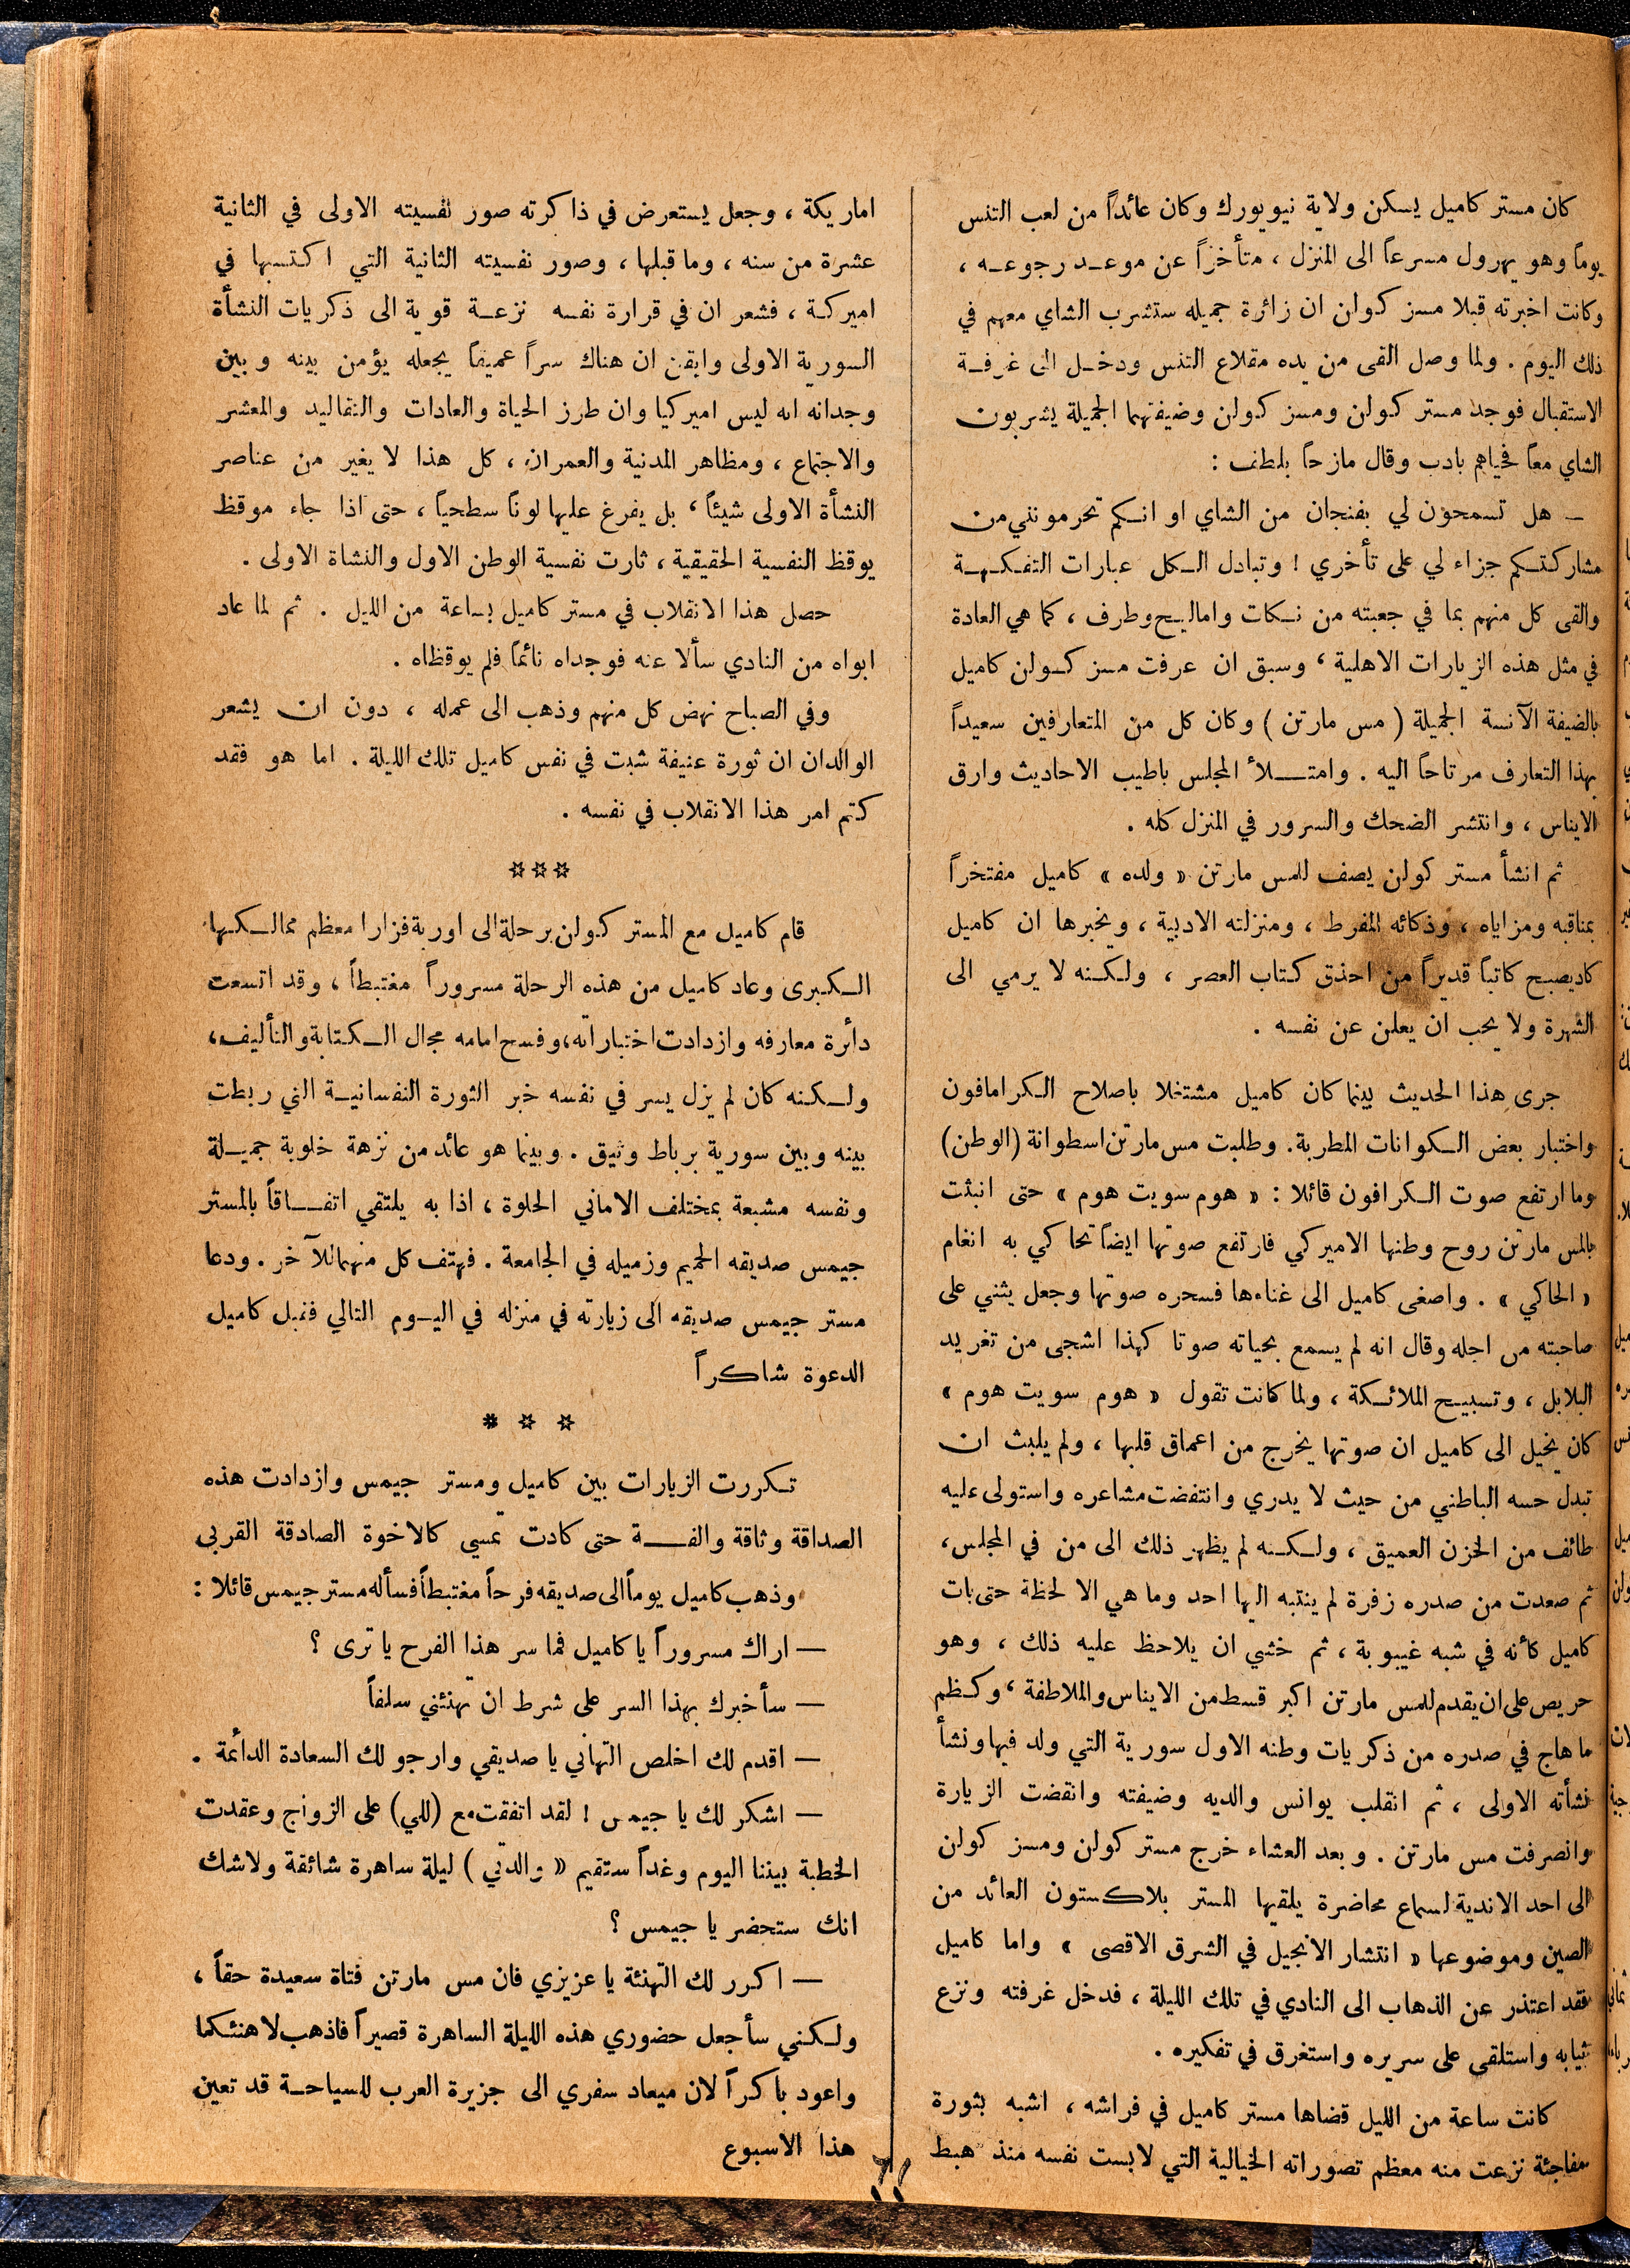 كان مستر كاميل يسكن ولاية نيويورك وكان عائداً من لعب التنس
يوماً وهو يهرول مسرعاً الى المنزل ، متأخراً عن موعد رجوعه ،
وكانت اخبرته قبلا مسز كولن ان زائرة جميله ستشرب الشاي معهم في
ذلك اليوم . ولما وصل القى من يده مقلاع التنس ودخل الى غرفة
الاستقبال فوجد مستر كولن ومسز كولن وضيفتهما الجميلة يشربون
الشاي معاً فحياهم بادب وقال مازحاً بلطف :
– هل تسمحون لي بفنجان من الشاي او انكم تحرمونني من
مشاركتكم جزاء لي على تأخري ! وتبادل الكل عبارات التفكهة
والقى كل منهم بما في جعبته من نكات واماليح وطرف ، كما هي العادة
في مثل هذه الزيارات الاهلية ، وسبق ان عرفت مسز كولن كاميل
بالضيفة الآنسة الجميلة ( مس مارتن ) وكان كل من المتعارفين سعيداً
بهذا التعارف مرتاحاً اليه . وامتلأ المجلس باطيب الاحاديث وارق
الايناس ، وانتشر الضحك والسرور في المنزل كله .
ثم انشأ مستر كولن يصف للمس مارتن « ولده » كاميل مفتخراً
بمناقبه ومزاياه ، وذكائه المفرط ، ومنزلته الادبية ، ويخبرها ان كاميل
كاد يصبح كاتباً قديراً من احذق كتاب العصر ، ولكنه لا يرمي الى
الشهرة ولا يحب ان يعلن عن نفسه .
جرى هذا الحديث بينما كان كاميل مشتغلا باصلاح الكرامافون
واختبار بعض الكوانات المطربة . وطلبت مس مارتن اسطوانة (الوطن)
وما ارتفع صوت الكرافون قائلا : « هوم سويت هوم » حتى انبثت
بالمس مارتن روح وطنها الاميركي فارتفع صوتها ايضاً تحاكي به انغام
« الحاكي » . واصغى كاميل الى غناءها فسحره صوتها وجعل يثني على
صاحبته من اجله وقال انه لم يسمع بحياته صوتا كهذا اشجى من تغريد
البلابل ، وتسبيح الملائكة ، ولما كانت تقول « هوم سويت هوم »
كان يخيل الى كاميل ان صوتها يخرج من اعماق قلبها ، ولم يلبث ان
تبدل حسه الباطني من حيث لا يدري وانتفضت مشاعره واستولى عليه
طائف من الحزن العميق ، ولكنه لم يظهر ذلك الى من في المجلس ،
ثم صعدت من صدره زفرة لم ينتبه اليها احد وما هي الا لحظة حتى بات
كاميل كأنه في شبه غيبوبة ، ثم خشي ان يلاحظ عليه ذلك ، وهو
حريص على ان يقدم للمس مارتن اكبر قسط من الايناس والملاطفة ، وكظم
ما هاج في صدره من ذكريات وطنه الاول سورية التي ولد فيها ونشأ
نشأته الاولى ، ثم انقلب يوانس والديه وضيفته وانقضت الزيارة
وانصرفت مس مارتن . وبعد العشاء خرج مستر كولن ومسز كولن
الى احد الاندية لسماع محاضرة يلقيها المستر بلاكستون العائد من
الصين وموضوعها « انتشار الانجيل في الشرق الاقصى » واما كاميل
فقد اعتذر عن الذهاب الى النادي في تلك الليلة ، فدخل غرفته ونزع
ثيابه واستلقى على سريره واستغرق في تفكيره .
كانت ساعة من الليل قضاها مستر كاميل في فراشه ، اشبه بثورة
مفاجئة نزعت منه معظم تصوراته الخيالية التي لابست نفسه منذ هبط
اماريكة ، وجعل يستعرض في ذاكرته صور نفسيته الاولى في الثانية
عشرة من سنه ، وما قبلها ، وصور نفسيته الثانية التي اكتسبها في
اميركة ، فشعر ان في قرارة نفسه نزعة قوية الى ذكريات النشأة
السورية الاولى وايقن ان هناك سراً عميقاً يجعله يؤمن بينه وبين
وجدانه انه ليس اميركيا وان طرز الحياة والعادات والتقاليد والمعشر
والاجتماع ، ومظاهر المدنية والعمران ، كل هذا لا يغير من عناصر
النشأة الاولى شيئاً ، بل يفرغ عليها لوناً سطحياً ، حتى اذا جاء موقظ
يوقظ النفسية الحقيقية ، ثارت نفسية الوطن الاول والنشاة الاولى .
حصل هذا الانقلاب في مستر كاميل بساعة من الليل . ثم لما عاد
ابواه من النادي سألا عنه فوجداه نائماً فلم يوقظاه .
وفي الصباح نهض كل منهم وذهب الى عمله ، دون ان يشعر
الوالدان ان ثورة عنيفة شبت في نفس كاميل تلك الليلة . اما هو فقد
كتم امر هذا الانقلاب في نفسه .
☆☆☆
قام كاميل مع المستر كولن برحلة الى اوربة فزارا معظم ممالكها
الكبرى وعاد كاميل من هذه الرحلة مسروراً مغتبطاً ، وقد اتسعت
دائرة معارفه وازدادت اختباراته ، وفسح امامه مجال الكتابة والتأليف ،
ولكنه كان لم يزل يسر في نفسه خبر الثورة النفسانية التي ربطت
بينه وبين سورية برباط وثيق . وبينما هو عائد من نزهة خلوبة جميلة
ونفسه مشبعة بمختلف الاماني الحلوة ، اذا به يلتقي اتفاقاً بالمستر
جيمس صديقه الحميم وزميله في الجامعة . فهتف كل منهما للآخر . ودعا
مستر جيمس صديقه الى زيارته في منزله في اليوم التالي فقبل كاميل
الدعوة شاكراً
☆ ☆ ☆
تكررت الزيارات بين كاميل ومستر جيمس وازدادت هذه
الصداقة وثاقة والفة حتى كادت تمسي كالاخوة الصادقة القربى
وذهب كاميل يوماً الى صديقه فرحاً مغتبطاً فسأله مستر جيمس قائلا :
— اراك مسروراً يا كاميل فما سر هذا الفرح يا ترى ؟
— سأخبرك بهذا السر على شرط ان تهنئني سلفاً
— اقدم لك اخلص التهاني يا صديقي وارجو لك السعادة الدائمة .
— اشكر لك يا جيمس ! لقد اتفقت مع (للي) على الزواج وعقدت
الخطبة بيننا اليوم وغداً ستقيم « والدتي ) ليلة ساهرة شائقة ولا شك
انك ستحضر يا جيمس ؟
— اكرر لك التهنئة يا عزيزي فان مس مارتن فتاة سعيدة حقاً ،
ولكني سأجعل حضوري هذه الليلة الساهرة قصيراً فاذهب لاهنئكما
واعود باكراً لان ميعاد سفري الى جزيرة العرب للسياحة قد تعين
هذا الاسبوع